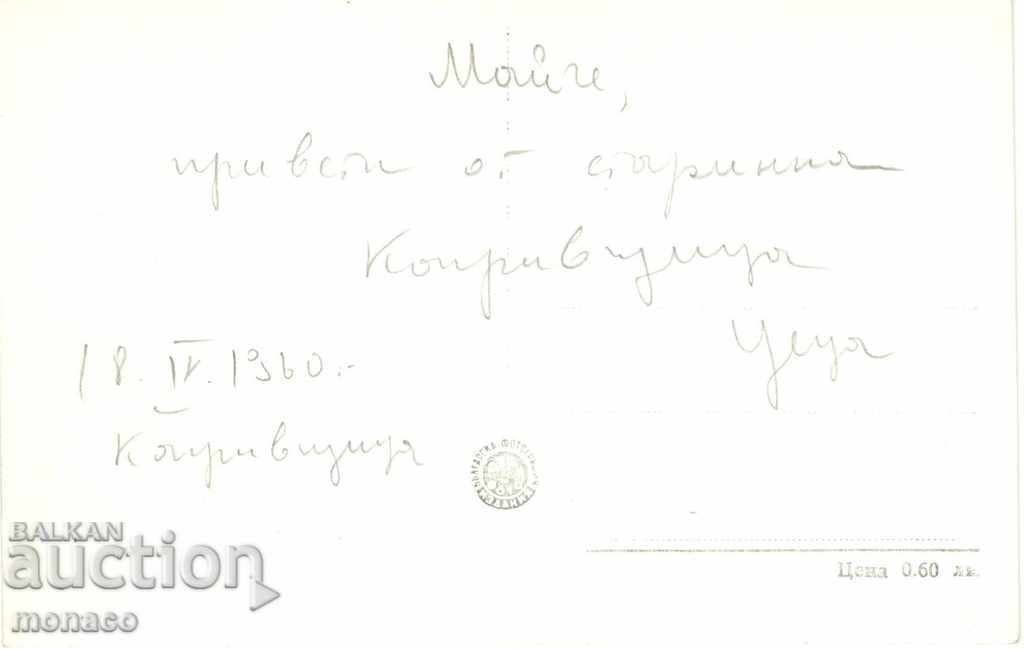 Майче,
привети от старинна
Копривщица
Цеца
18. IV. 1960.-
Копривщица
БЪЛГАРСКА ФОТОГРАФИЯ
ИЗДАНИЕ
Цена 0.60 лв.
BALKAN
auction
monaco